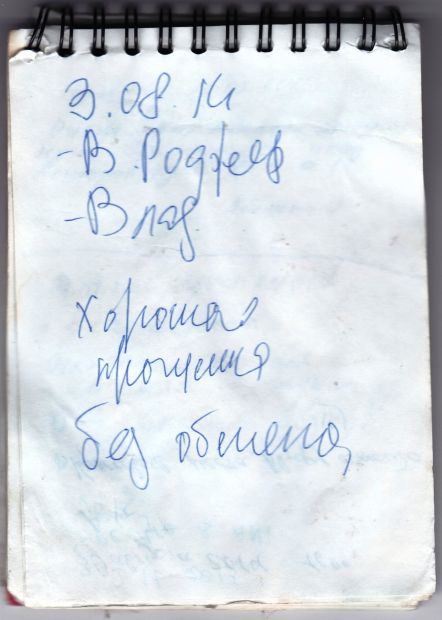 3.08.14
-В. Роджер
-Влад.
хорошая
прогулка
без обмена,